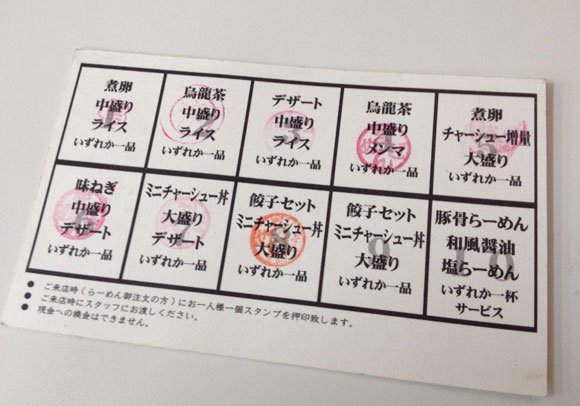 煮卵
中盛り
ライス
いずれか一品
烏龍茶
中盛り
ライス
いずれか一品
デザート
中盛り
ライス
いずれか一品
烏龍茶
中盛り
メンマ
いずれか一品
煮卵
チャーシュー増量
大盛り
いずれか一品
味ねぎ
中盛り
デザート
いずれか一品
ミニチャーシュー丼
大盛り
デザート
いずれか一品
餃子セット
ミニチャーシュー丼
大盛り
いずれか一品
餃子セット
ミニチャーシュー丼
大盛り
いずれか一品
豚骨らーめん
和風醤油
塩らーめん
いずれか一杯
サービス
● ご来店時(らーめん御注文の方)にお一人様一個スタンプを押印致します。
● ご来店時にスタッフにお渡しください。
● 現金への換金はできません。